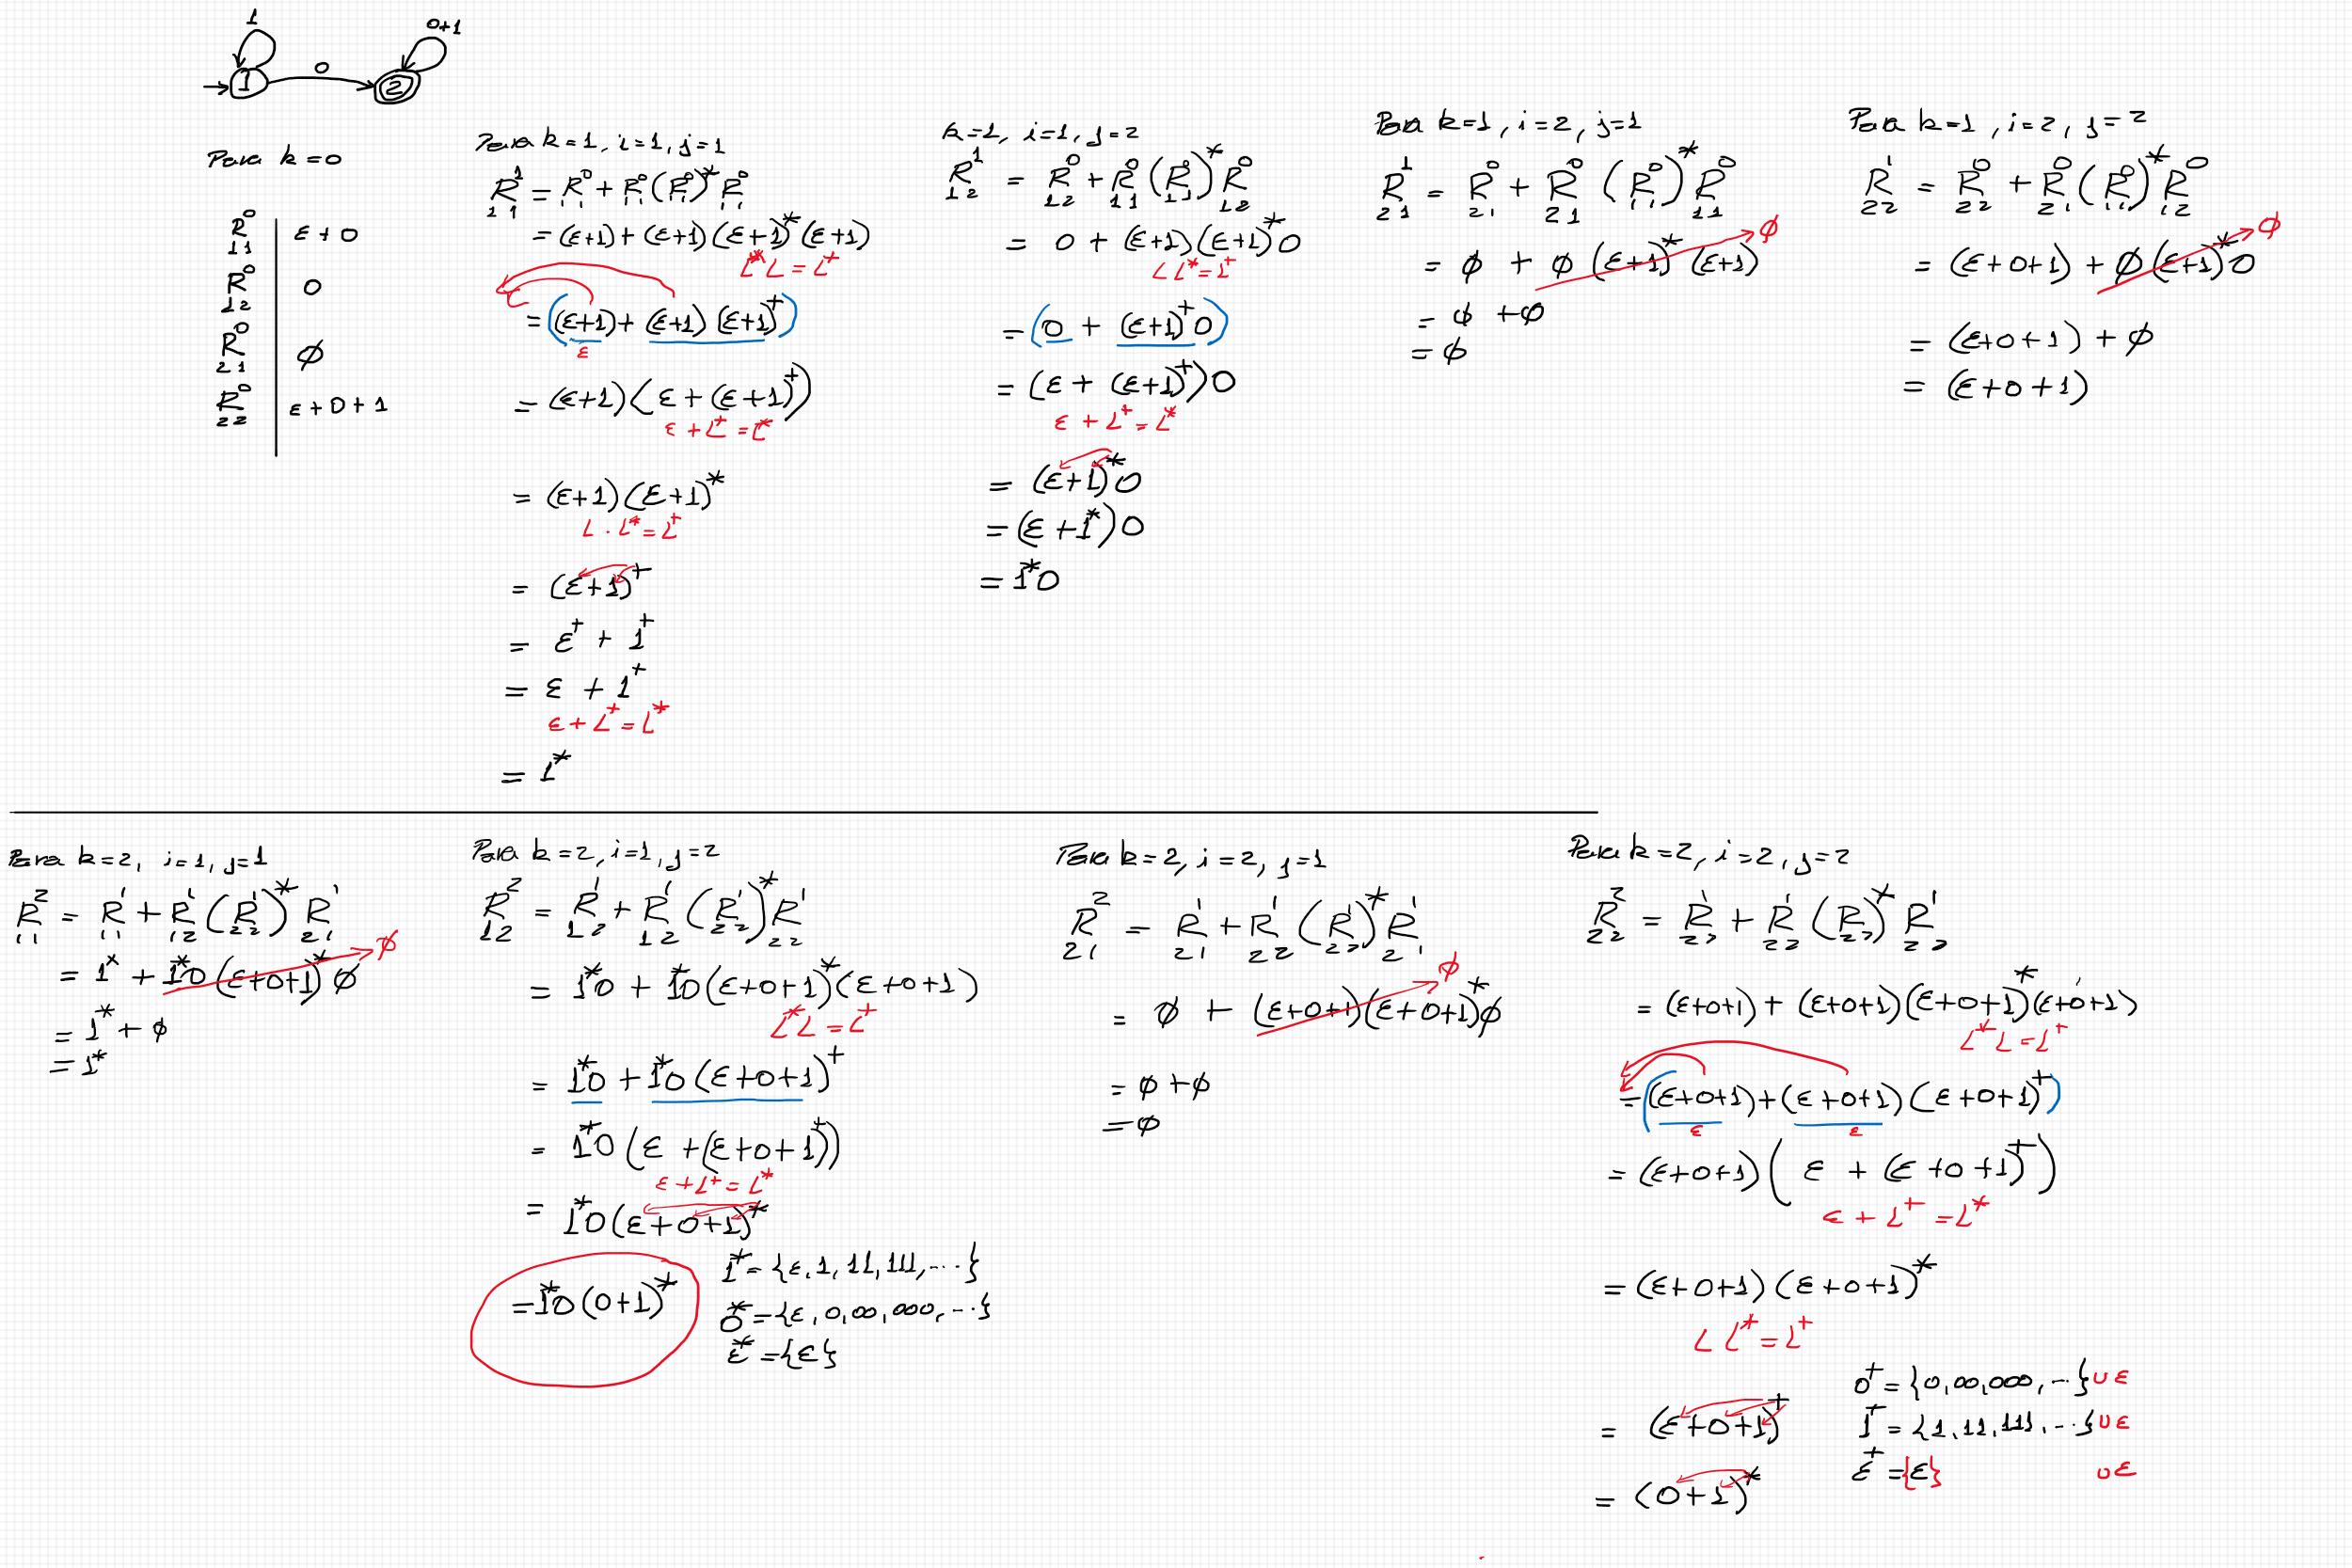 1
0+1
0
1
2
Para k=0
R⁰₁₁ ε+0
R⁰₁₂ 0
R⁰₂₁ ϕ
R⁰₂₂ ε+0+1
Para k=1, i=1, j=1
R¹₁₁ = R⁰₁₁ + R⁰₁₁(R⁰₁₁)* R⁰₁₁
= (ε+1) + (ε+1)(ε+1)*(ε+1)
L*L = L⁺
= ((ε+1) + (ε+1)(ε+1)⁺)
ε
= (ε+1)(ε + (ε+1)⁺)
ε + L⁺ = L*
= (ε+1)(ε+1)*
L · L* = L⁺
= (ε+1)⁺
= ε⁺ + 1⁺
= ε + 1⁺
ε + L⁺ = L*
= 1*
k=1, i=1, j=2
R¹₁₂ = R⁰₁₂ + R⁰₁₁(R⁰₁₁)* R⁰₁₂
= 0 + (ε+1)(ε+1)*0
L L* = L⁺
= (0 + (ε+1)⁺0)
= (ε + (ε+1)⁺)0
ε + L⁺ = L*
= (ε+1)*0
= (ε+1*)0
= 1*0
Para k=1, i=2, j=1
R¹₂₁ = R⁰₂₁ + R⁰₂₁ (R⁰₁₁)* R⁰₁₁
= ϕ + ϕ (ε+1)* (ε+1) ϕ
= ϕ + ϕ
= ϕ
Para k=1, i=2, j=2
R¹₂₂ = R⁰₂₂ + R⁰₂₁(R⁰₁₁)* R⁰₁₂
= (ε+0+1) + ϕ(ε+1)*0 ϕ
= (ε+0+1) + ϕ
= (ε+0+1)
Para k=2, i=1, j=1
R²₁₁ = R¹₁₁ + R¹₁₂(R¹₂₂)* R¹₂₁
= 1* + 1*0(ε+0+1)*ϕ ϕ
= 1* + ϕ
= 1*
Para k=2, i=1, j=2
R²₁₂ = R¹₁₂ + R¹₁₂(R¹₂₂)* R¹₂₂
= 1*0 + 1*0(ε+0+1)*(ε+0+1)
L*L = L⁺
= 1*0 + 1*0(ε+0+1)⁺
= 1*0(ε + (ε+0+1)⁺)
ε + L⁺ = L*
= 1*0(ε+0+1)*
= 1*0(0+1)*
1* = {ε, 1, 11, 111, ...}
0* = {ε, 0, 00, 000, ...}
ε* = {ε}
Para k=2, i=2, j=1
R²₂₁ = R¹₂₁ + R¹₂₂(R¹₂₂)* R¹₂₁
= ϕ + (ε+0+1)(ε+0+1)*ϕ ϕ
= ϕ + ϕ
= ϕ
Para k=2, i=2, j=2
R²₂₂ = R¹₂₂ + R¹₂₂(R¹₂₂)* R¹₂₂
= (ε+0+1) + (ε+0+1)(ε+0+1)*(ε+0+1)
L*L = L⁺
= ((ε+0+1) + (ε+0+1)(ε+0+1)⁺)
ε ε
= (ε+0+1)(ε + (ε+0+1)⁺)
ε + L⁺ = L*
= (ε+0+1)(ε+0+1)*
L L* = L⁺
= (ε+0+1)⁺
= (0+1)*
0⁺ = {0, 00, 000, ...} ∪ ε
1⁺ = {1, 11, 111, ...} ∪ ε
ε⁺ = {ε} ∪ ε